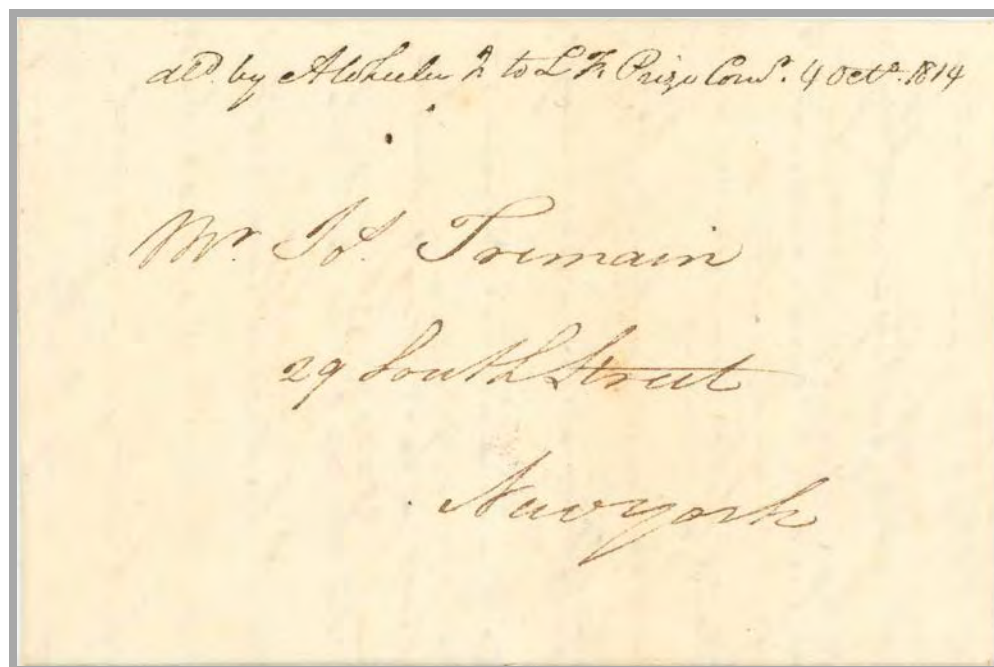 del'd. by A Wheeler to L F. Prize Com'r. 4 Oct'r. 1814
Mr. Js. Tremain
29 South Street
New york